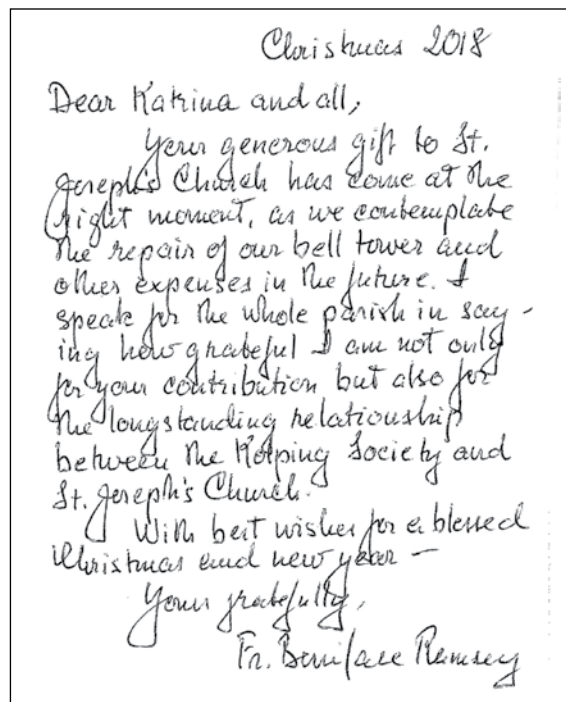 Christmas 2018
Dear Katrina and all,
Your generous gift to St.
Joseph's Church has come at the
right moment, as we contemplate
the repair of our bell tower and
other expenses in the future. I
speak for the whole parish in say-
ing how grateful I am not only
for your contribution but also for
the longstanding relationship
between the Kolping Society and
St. Joseph's Church.
With best wishes for a blessed
Christmas and new year —
Yours gratefully,
Fr. Boniface Ramsey